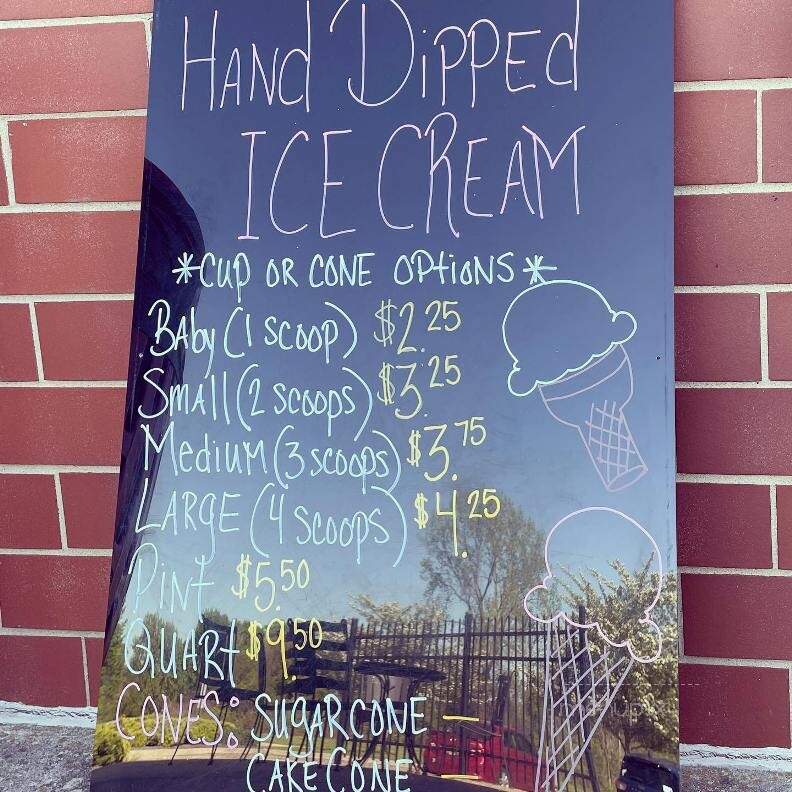 HANd DiPPEd
ICE CREAM
*CUP OR CONE OPtiONS*
BAby (1 SCOOP) $2.25
SMAll (2 SCOOPS) $3.25
MediUM (3 SCOOPS) $3.75
LARGE (4 SCOOPS) $4.25
PiNt $5.50
QUARt $9.50
CONES: SUGAR CONE —
CAKE CONE —